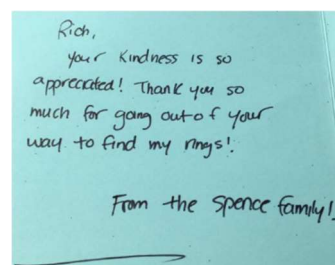 Rich,
Your Kindness is so
appreciated! Thank you so
much for going out of your
way to find my rings!
From the Spence family!